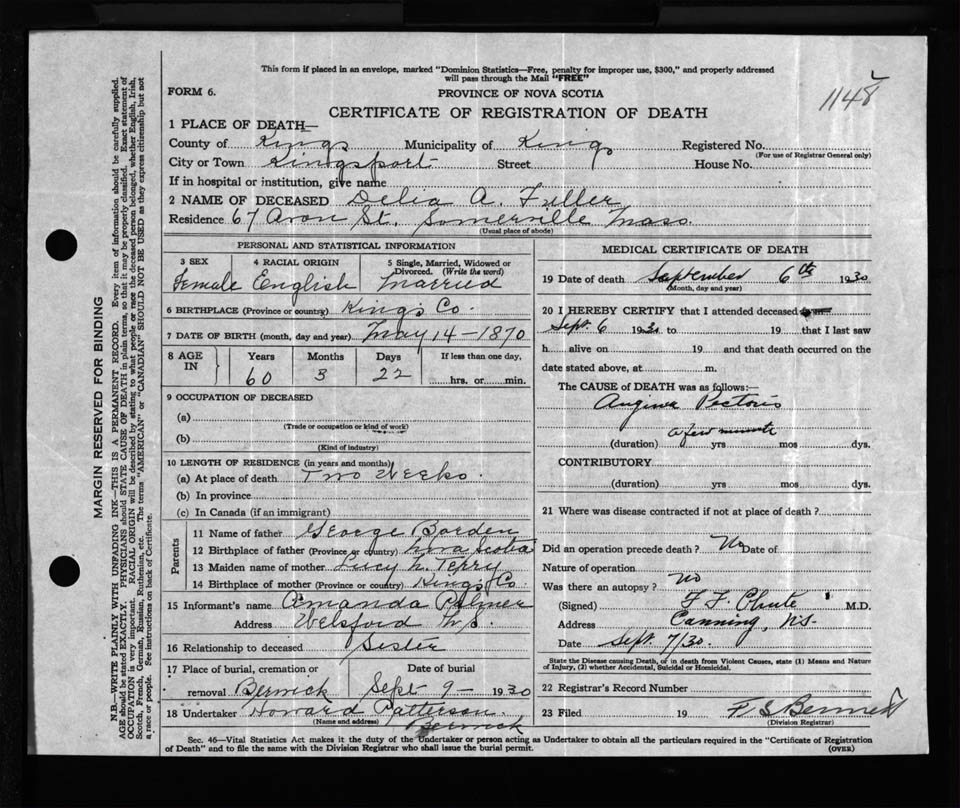 This form if placed in an envelope, marked "Dominion Statistics—Free, penalty for improper use, $300," and properly addressed
will pass through the Mail "FREE"
FORM 6.
PROVINCE OF NOVA SCOTIA
1148
CERTIFICATE OF REGISTRATION OF DEATH
1 PLACE OF DEATH—
County of Kings Municipality of Kings Registered No.
(For use of Registrar General only)
City or Town Kingsport Street House No.
If in hospital or institution, give name
2 NAME OF DECEASED Delia A. Fuller
Residence 67 Avon St. Somerville Mass.
(Usual place of abode)
PERSONAL AND STATISTICAL INFORMATION
3 SEX 4 RACIAL ORIGIN 5 Single, Married, Widowed or
Divorced. (Write the word)
Female English Married
6 BIRTHPLACE (Province or country) Kings Co.
7 DATE OF BIRTH (month, day and year) May 14—1870
8 AGE IN Years Months Days If less than one day,
60 3 22 hrs. or min.
9 OCCUPATION OF DECEASED
(a)
(Trade or occupation or kind of work)
(b)
(Kind of industry)
10 LENGTH OF RESIDENCE (in years and months)
(a) At place of death Two Weeks.
(b) In province
(c) In Canada (if an immigrant)
Parents
11 Name of father George Borden
12 Birthplace of father (Province or country) Nova Scotia
13 Maiden name of mother Lucy N. Terry
14 Birthplace of mother (Province or country) Kings Co.
15 Informant's name Amanda Palmer
Address Welsford N.S.
16 Relationship to deceased Sister
17 Place of burial, cremation or Date of burial
removal Berwick Sept 9— 1930
18 Undertaker Howard Patterson
(Name and address) Berwick
MEDICAL CERTIFICATE OF DEATH
19 Date of death September 6th 1930
(Month, day and year)
20 I HEREBY CERTIFY that I attended deceased
Sept. 6 1930 to 19 that I last saw
h alive on 19 and that death occurred on the
date stated above, at m.
The CAUSE of DEATH was as follows:—
Angina Pectoris
a few minutes
(duration) yrs mos dys.
CONTRIBUTORY
(duration) yrs mos dys.
21 Where was disease contracted if not at place of death?
Did an operation precede death? No Date of
Nature of operation
Was there an autopsy? no
(Signed) F. F. Chute M.D.
Address Canning, N.S.
Date Sept 7/30.
State the Disease causing Death, or in death from Violent Causes, state (1) Means and Nature
of Injury, (2) whether Accidental, Suicidal or Homicidal.
22 Registrar's Record Number
23 Filed 19
(Division Registrar)
Sec. 46—Vital Statistics Act makes it the duty of the Undertaker or person acting as Undertaker to obtain all the particulars required in the "Certificate of Registration
of Death" and to file the same with the Division Registrar who shall issue the burial permit. (OVER)
MARGIN RESERVED FOR BINDING
N.B.—WRITE PLAINLY WITH UNFADING INK—THIS IS A PERMANENT RECORD. Every item of information should be carefully supplied.
AGE should be stated EXACTLY. PHYSICIANS should STATE CAUSE OF DEATH in plain terms, so that it may be properly classified. Exact statement of
OCCUPATION is very important. RACIAL ORIGIN will be described by stating to what people or race the deceased person belonged, whether English, Irish,
Scotch, French, German, Russian, Ruthenian, etc. The terms "AMERICAN" or "CANADIAN" SHOULD NOT BE USED as they express citizenship but not
a race or people. See instructions on back of Certificate.